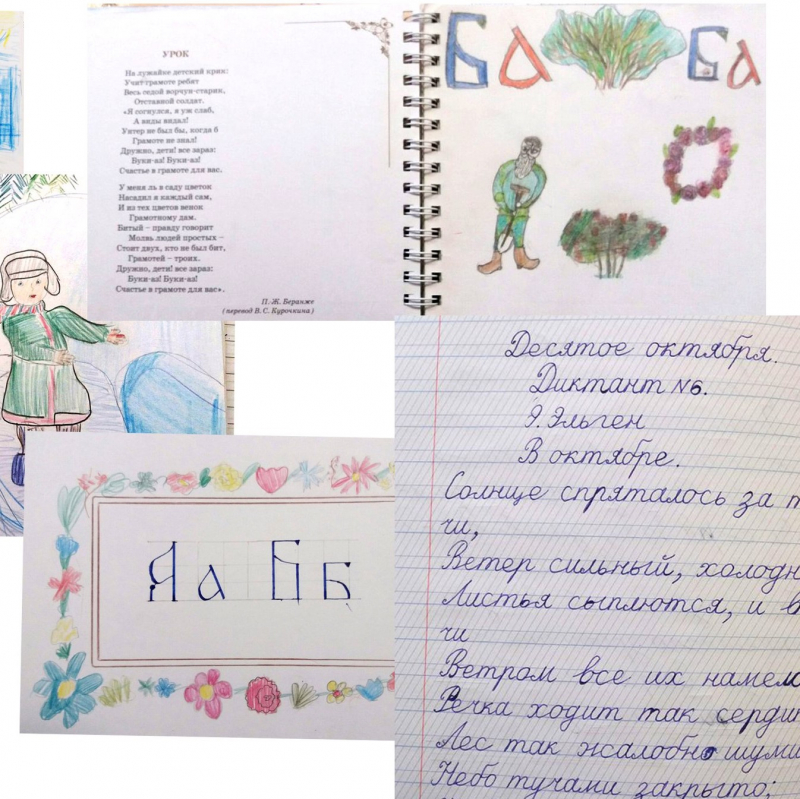 УРОК
На лужайке детский крик:
Учит грамоте ребят
Весь седой ворчун-старик,
Отставной солдат.
«Я согнулся, я уж слаб,
А виды видал!
Унтер не был бы, когда б
Грамоте не знал!
Дружно, дети! все зараз:
Буки-аз! Буки-аз!
Счастье в грамоте для вас.
У меня ль в саду цветок
Насадил я каждый сам,
И из тех цветов венок
Грамотному дам.
Битый – правду говорит
Молвь людей простых –
Стоит двух, кто не был бит,
Грамотей – троих.
Дружно, дети! все зараз:
Буки-аз! Буки-аз!
Счастье в грамоте для вас».
П.-Ж. Беранже
(перевод В. С. Курочкина)
Ба Ба
Аа Бб
Десятое октября.
Диктант №6.
Э. Эльген
В октябре.
Солнце спряталось за т
чи,
Ветер сильный, холодн
Листья сыплются, и в
чи
Ветром все их намел
Речка ходит так серди
Лес так жалобно шуми
Небо тучами закрыто;